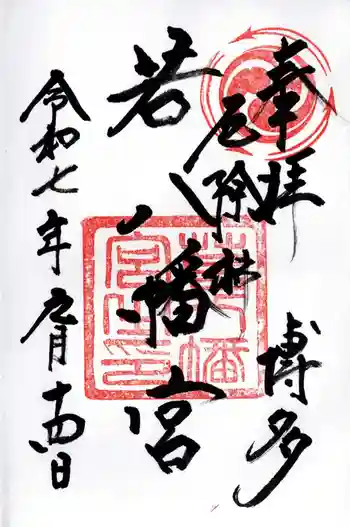 奉拝
博多
厄除社
若八幡宮
令和七年元月十四日
若八幡宮之印